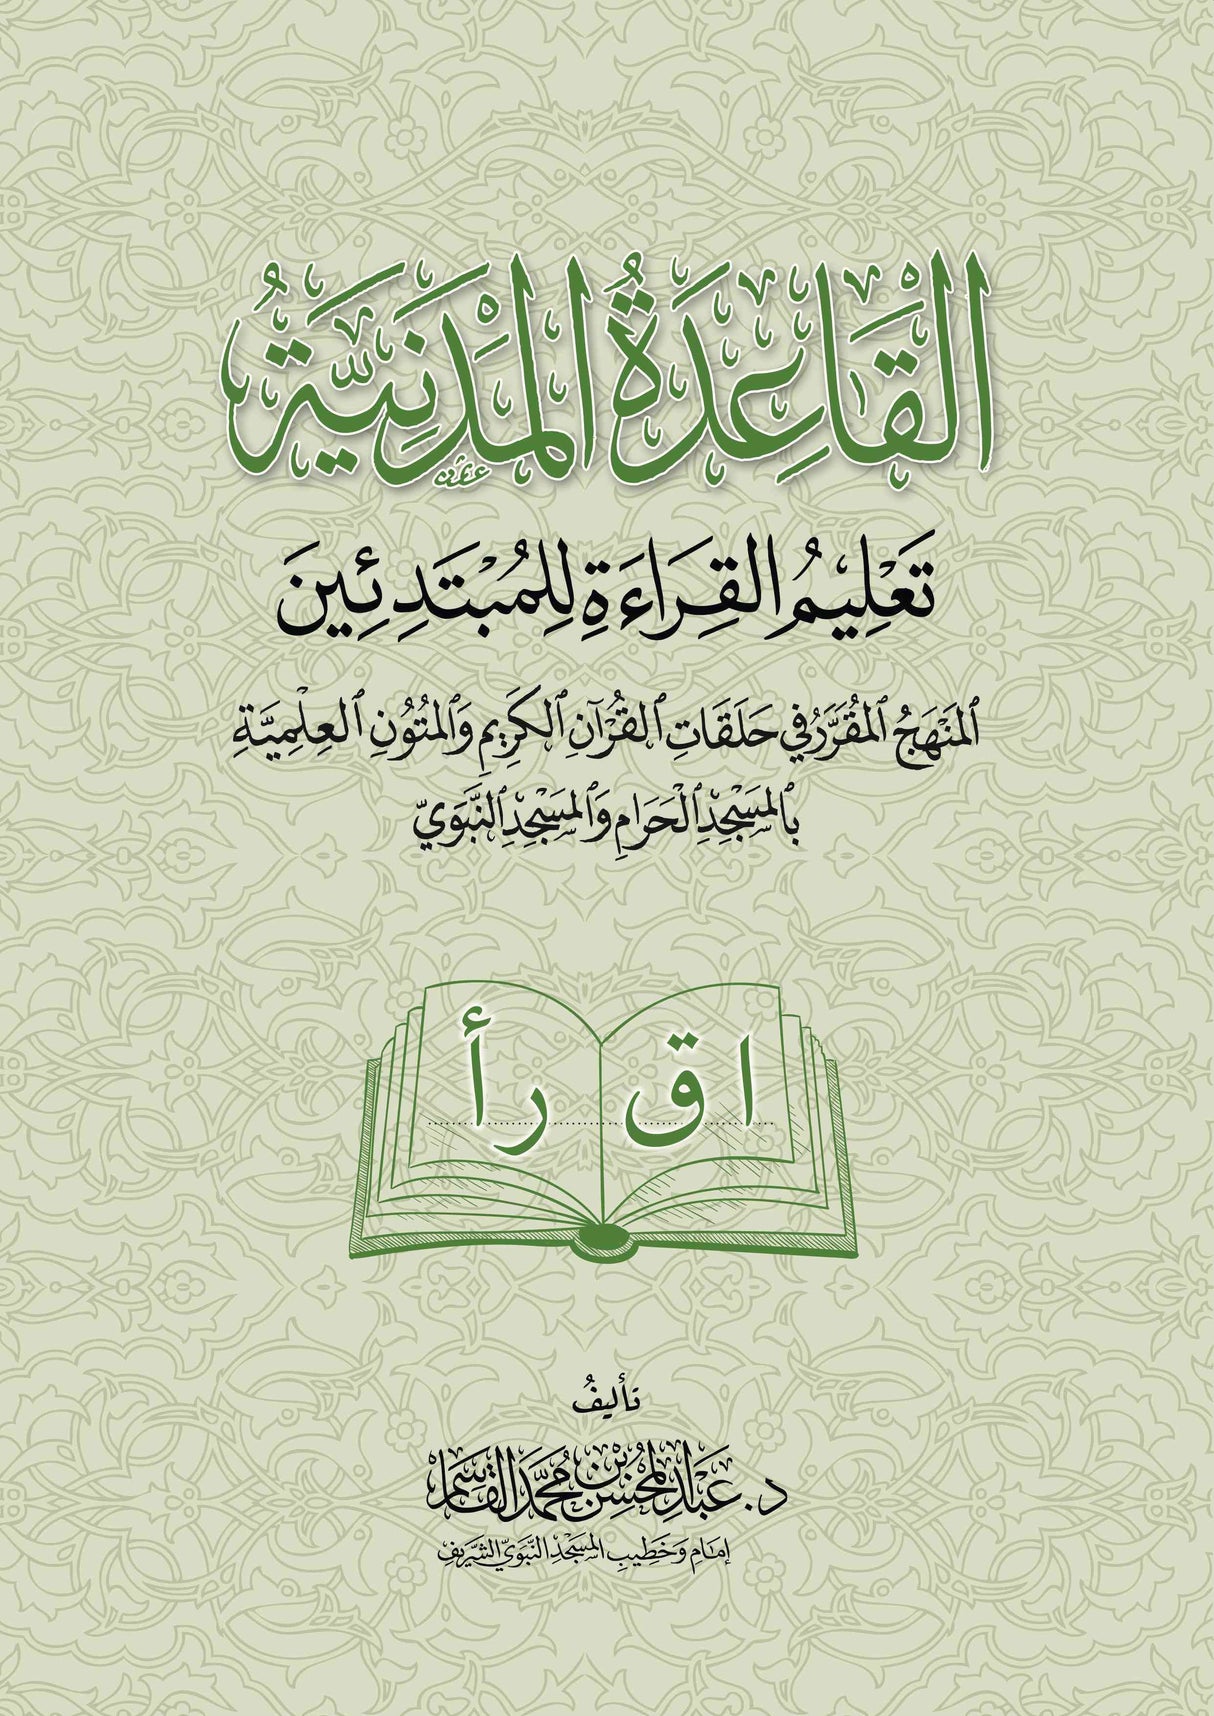 القَاعِدَةُ المَدَنِيَّةُ
تَعْلِيمُ القِرَاءَةِ لِلمُبْتَدِئِينَ
ٱلمَنْهَجُ ٱلمُقَرَّرُ فِي حَلَقَاتِ ٱلقُرْآنِ ٱلكَرِيمِ وَٱلمُتُونِ ٱلعِلْمِيَّةِ
بِٱلمَسْجِدِ ٱلْحَرَامِ وَٱلمَسْجِدِ ٱلنَّبَوِيِّ
ا ق ر أ
تأليفُ
د. عَبْدُ المُحْسِنِ بْنُ مُحَمَّدٍ القَاسِمُ
إمَامِ وَخَطِيبِ المَسْجِدِ النَّبَوِيِّ الشَّرِيفِ